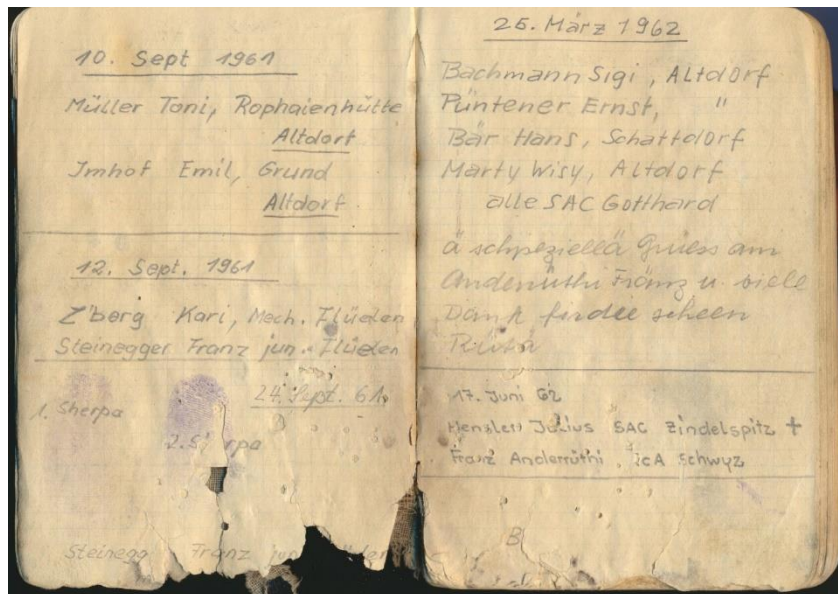 10. Sept 1961
Müller Toni, Rophaienhütte
Altdorf
Imhof Emil, Grund
Altdorf
12. Sept. 1961
Z'berg Kari, Mech. Flüelen
Steinegger Franz jun. Flüelen
24. Sept. 61.
1. Sherpa
2. Sherpa
Steinegg Franz jun
25. März 1962
Bachmann Sigi, Altdorf
Püntener Ernst, "
Bär Hans, Schattdorf
Marty Wisy, Altdorf
alle SAC Gotthard
ä schpeziellä Gruess am
Anderrüthi Fränz u. viele
Dank fir die scheen
17. Juni 62
Hensler Julius SAC Zindelspitz +
Franz Anderrüthi, SCA Schwyz
B